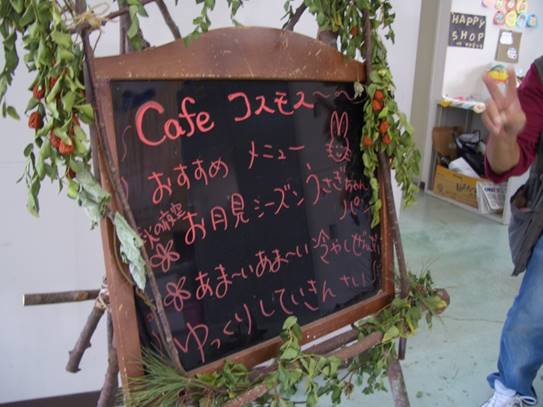 Cafe コスモス〜〜
おすすめ メニュー
お月見シーズン うさぎちゃん
パン
あま〜いあま〜い 冷やしぜんざい
ゆっくりしていきんさい
HAPPY
SHOP